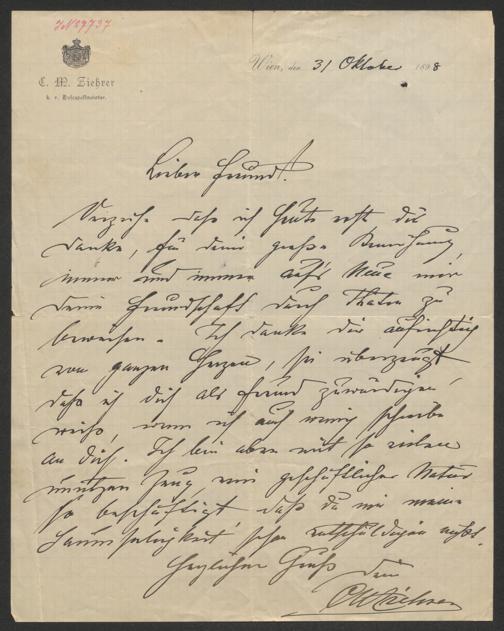 I.N. 29737
C. M. Ziehrer
k. u. k. Hofcapellmeister.
Wien, den 31 Oktober 1898
Lieber Freund!
Verzeihe daß ich heute erst dir
danke, für deine große Bemühung,
immer und immer auf's Neue mir
deine Freundschaft durch Thaten zu
beweisen. Ich danke dir aufrichtig
von ganzen Herzen, sei überzeugt
daß ich dich als Freund zu würdigen
weiß, wenn ich auch wenig schreibe
an dich. Ich bin aber mit so vielen
unützen Zeug, rein geschäftlicher Natur
so beschäftigt, daß du mir meine
Saumseligkeit schon entschuldigen mußt.
Herzlichen Gruß
Dein
CMZiehrer